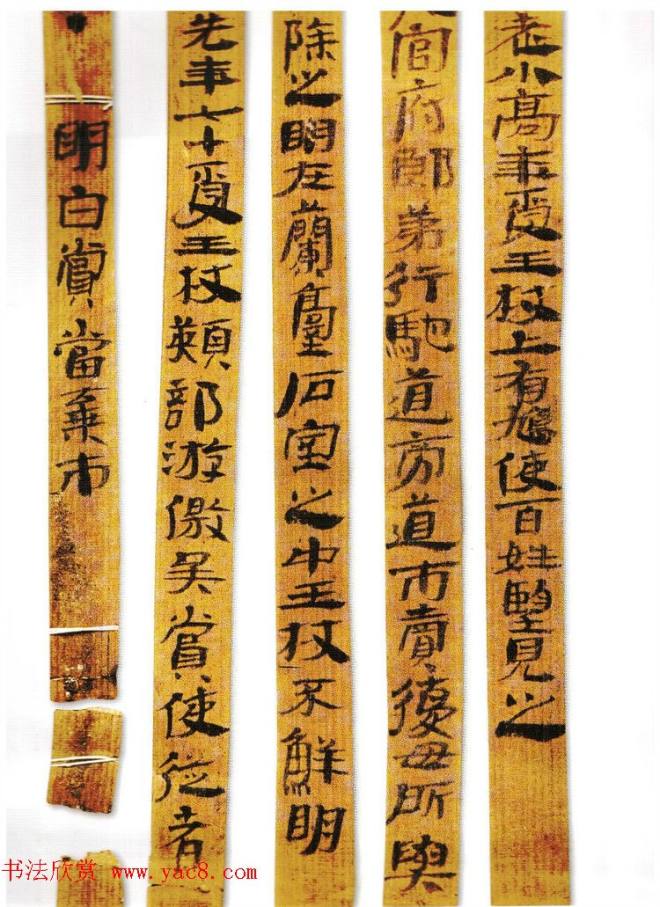 老小高年受王杖上有鳩使百姓望見之
入官府郎弟行馳道旁道市賣復毋所與
除之明在蘭臺石室之中王杖不鮮明
先年七十受王杖穎部游徼吳賞使從者
明白賞當棄市
书法欣赏 www.yac8.com